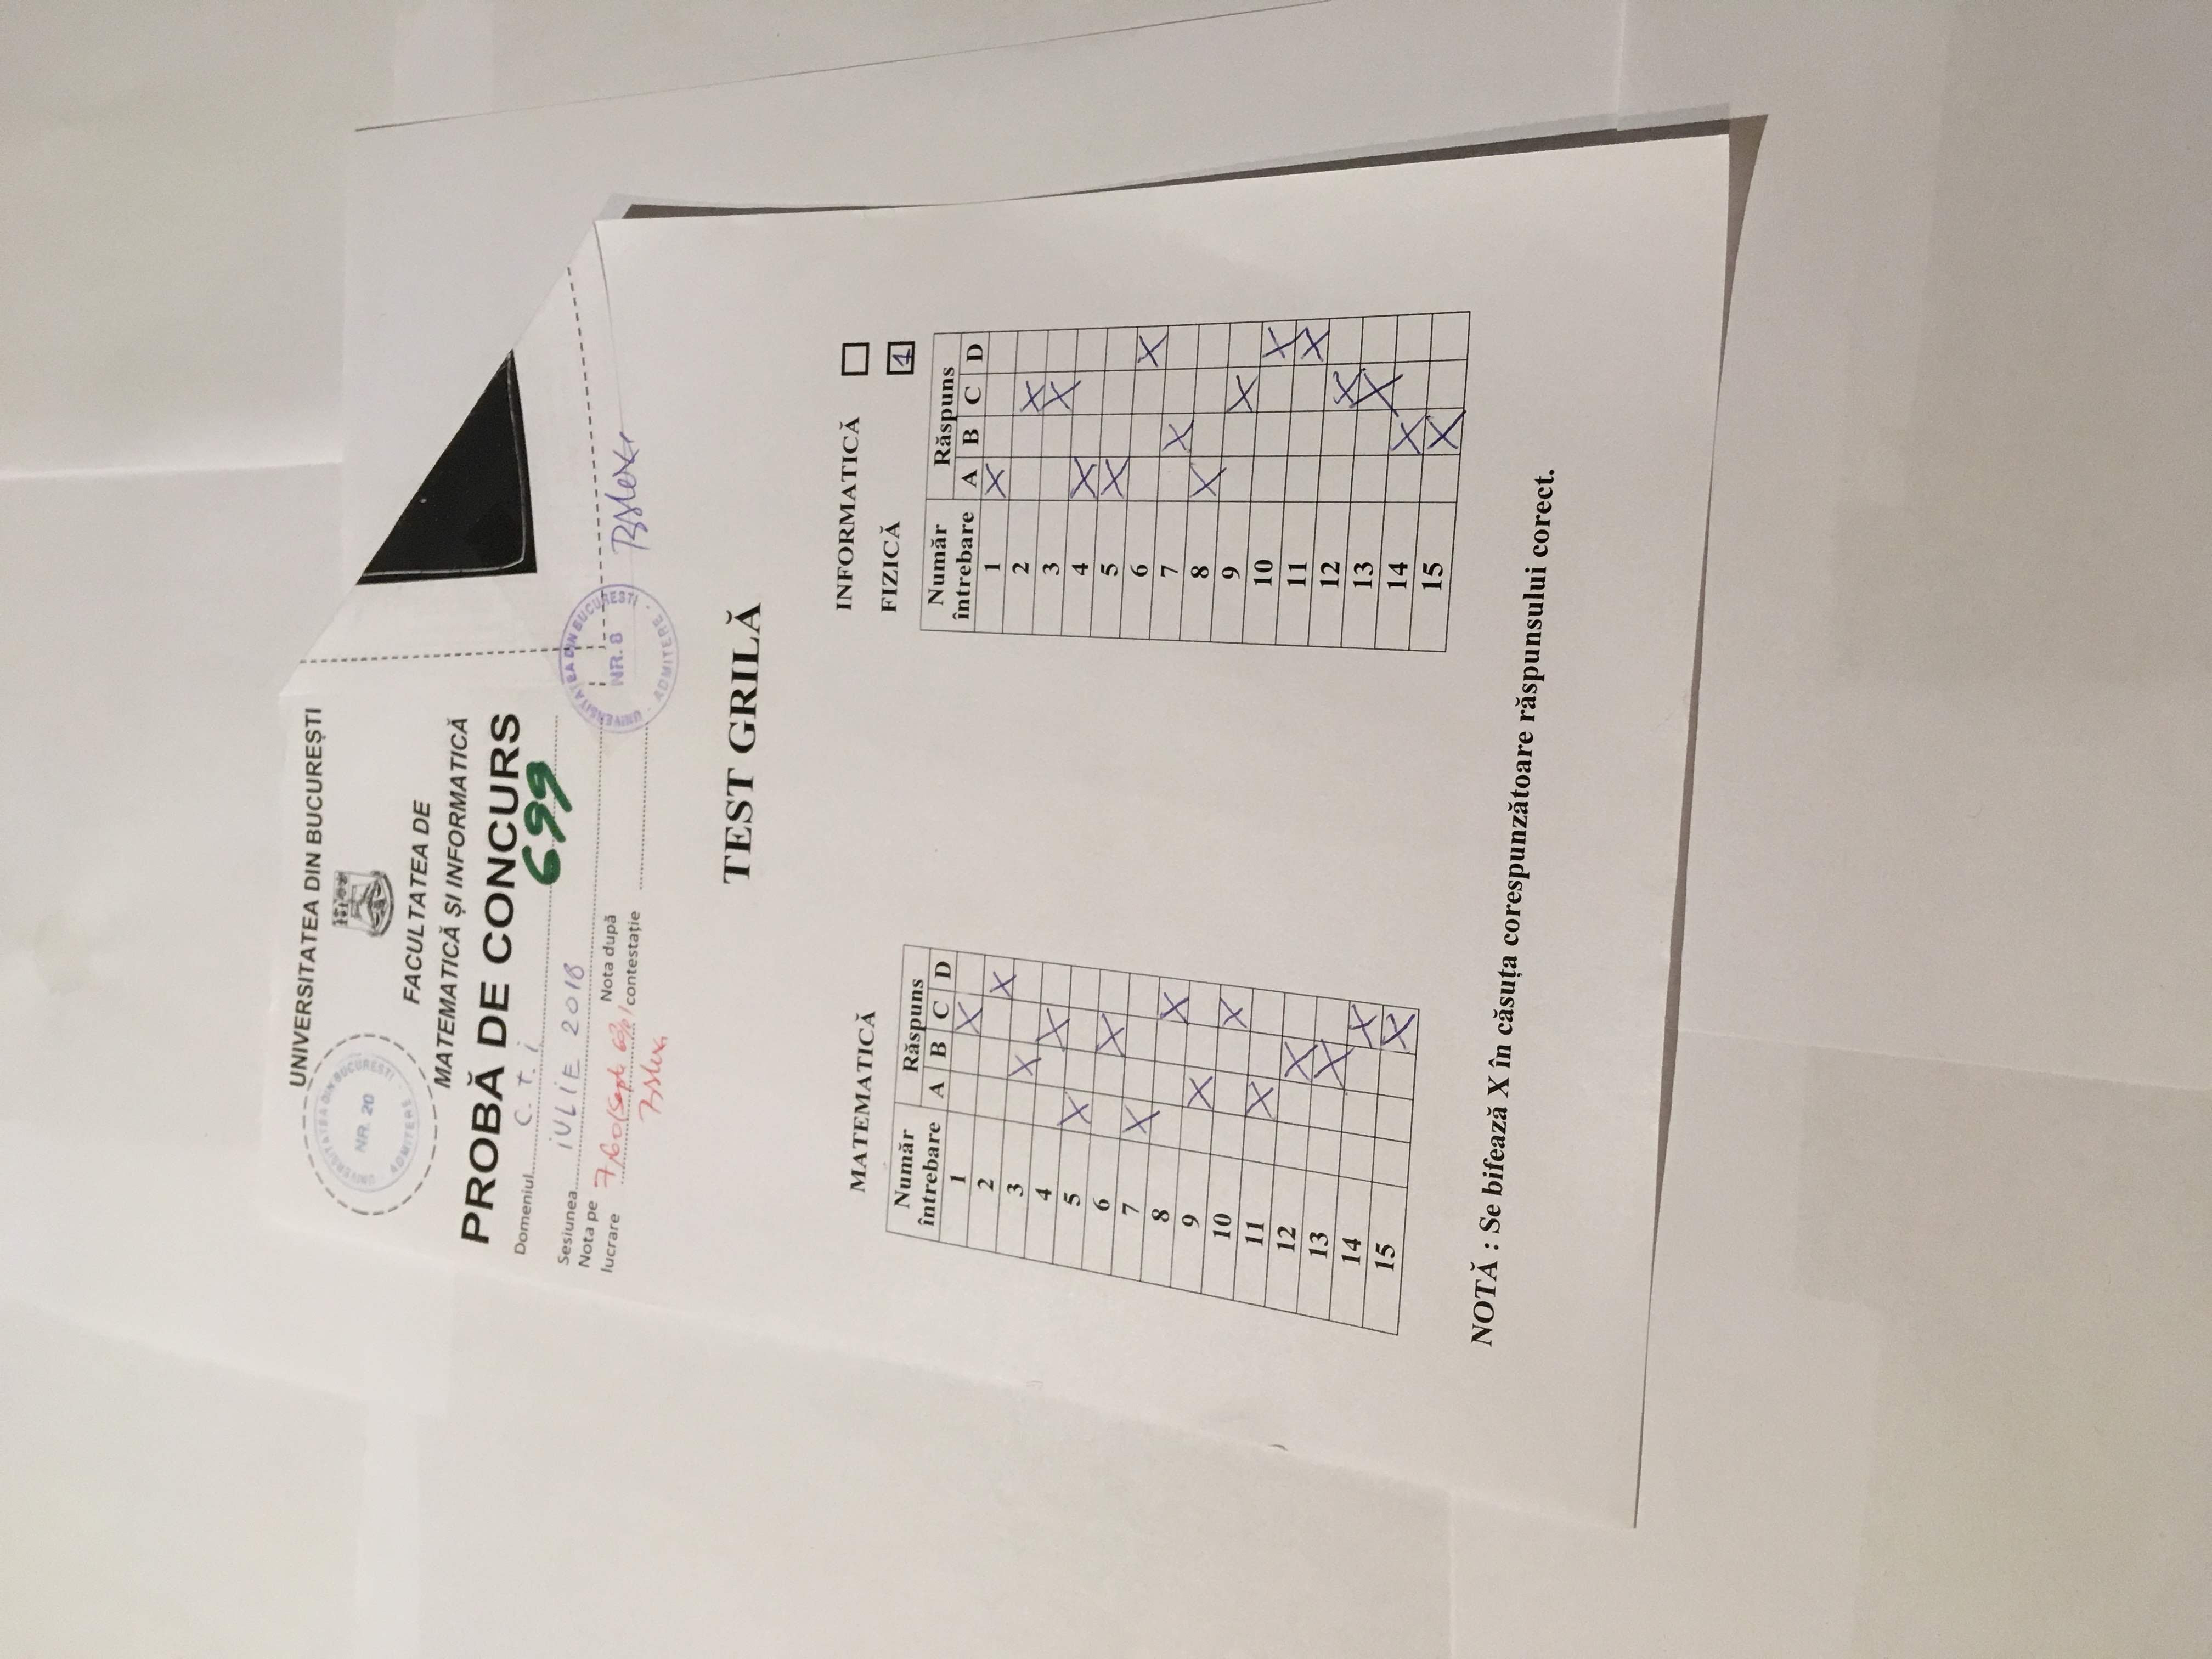 UNIVERSITATEA DIN BUCUREȘTI
UNIVERSITATEA DIN BUCUREȘTI
NR. 20
ADMITERE
FACULTATEA DE
MATEMATICĂ ȘI INFORMATICĂ
PROBĂ DE CONCURS
Domeniul C.T.i
699
Sesiunea iULIE 2018
Nota pe lucrare 7,60 (Șapte 60%)
Nota după contestație
UNIVERSITATEA DIN BUCUREȘTI
NR. 8
ADMITERE
TEST GRILĂ
MATEMATICĂ
Număr întrebare Răspuns
A B C D
1 X
2 X
3 X
4 X
5 X
6 X
7 X
8 X
9 X
10 X
11 X
12 X
13 X
14 X
15 X
INFORMATICĂ
FIZICĂ 1
Număr întrebare Răspuns
A B C D
1 X
2 X
3 X
4 X
5 X
6 X
7 X
8 X
9 X
10 X
11 X
12 X
13 X
14 X
15 X
NOTĂ : Se bifează X în căsuța corespunzătoare răspunsului corect.